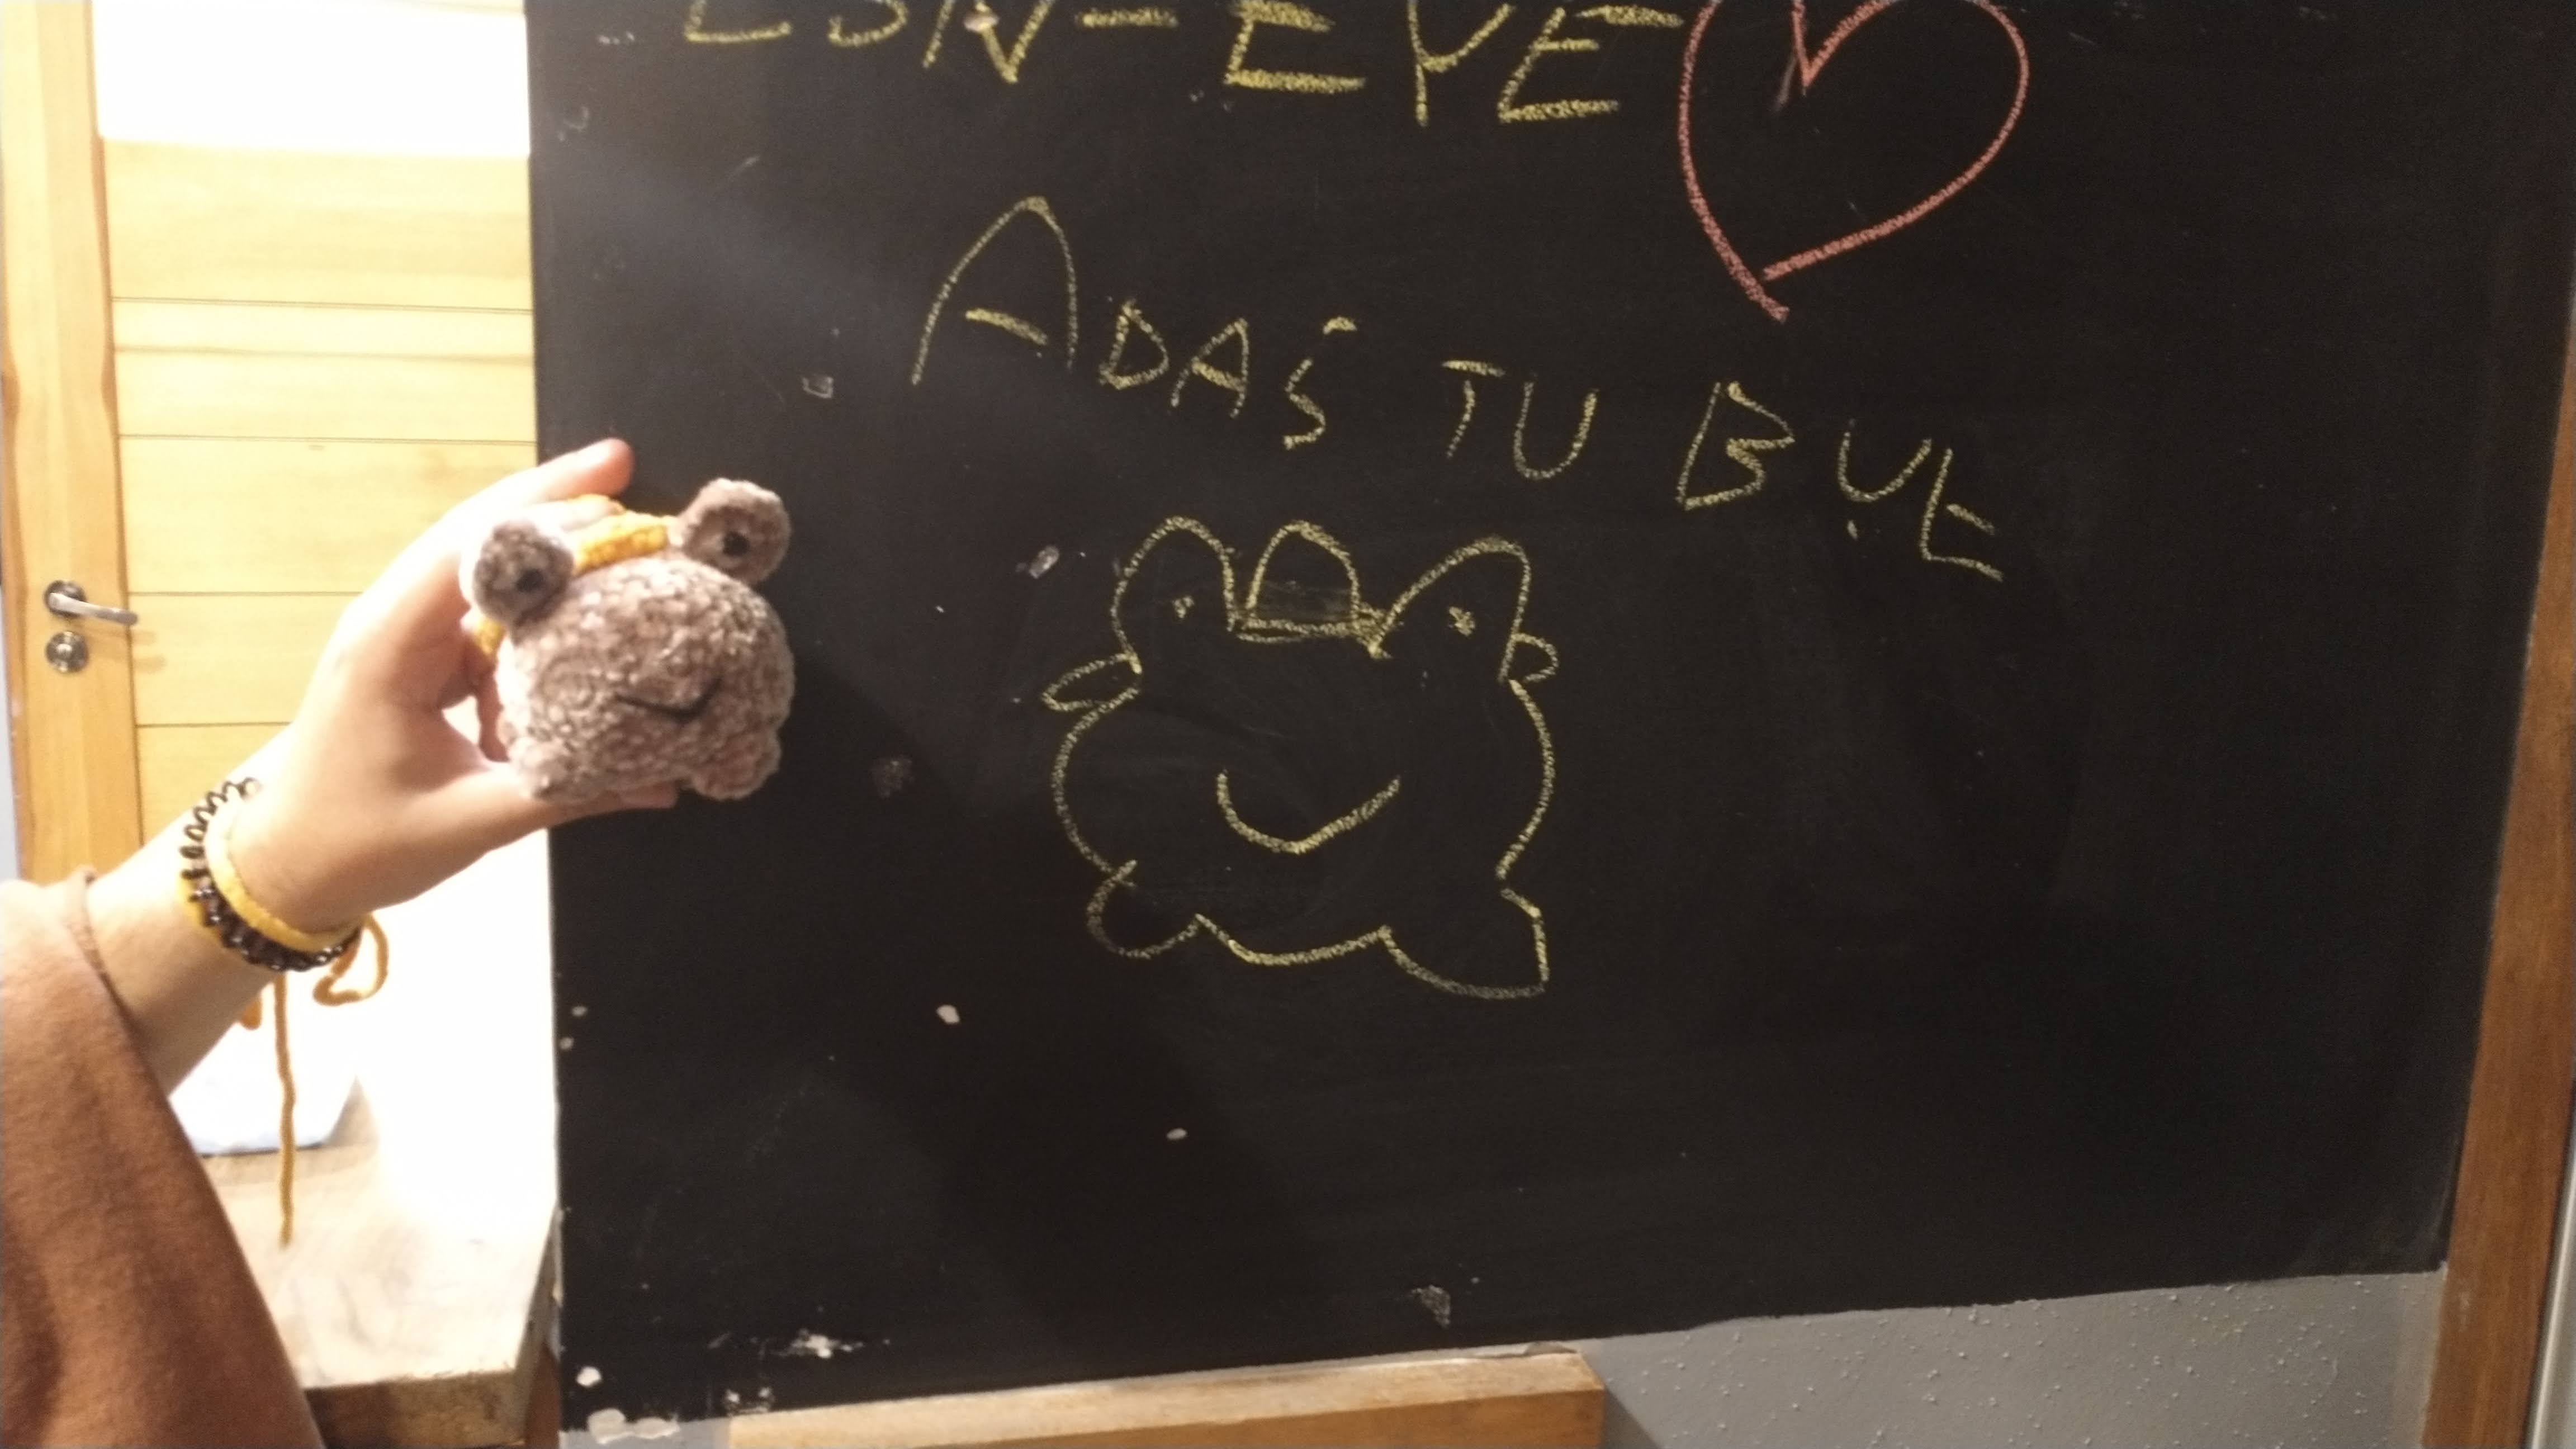 LON-EYE
ADAŚ TU BYŁ